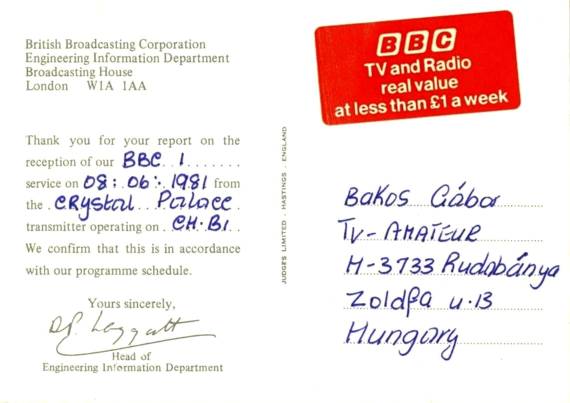 British Broadcasting Corporation
Engineering Information Department
Broadcasting House
London W1A 1AA
Thank you for your report on the
reception of our BBC 1.......
service on 08:06:.1981 from
the .CRystal..Palace..
transmitter operating on .CH.B1..
We confirm that this is in accordance
with our programme schedule.
Yours sincerely,
Head of
Engineering Information Department
JUDGES LIMITED . HASTINGS . ENGLAND
BBC
TV and Radio
real value
at less than £1 a week
Bakos Gábor
Tv-AMATEUR
H-3733 Rudabánya
Zoldfa u.13
Hungary